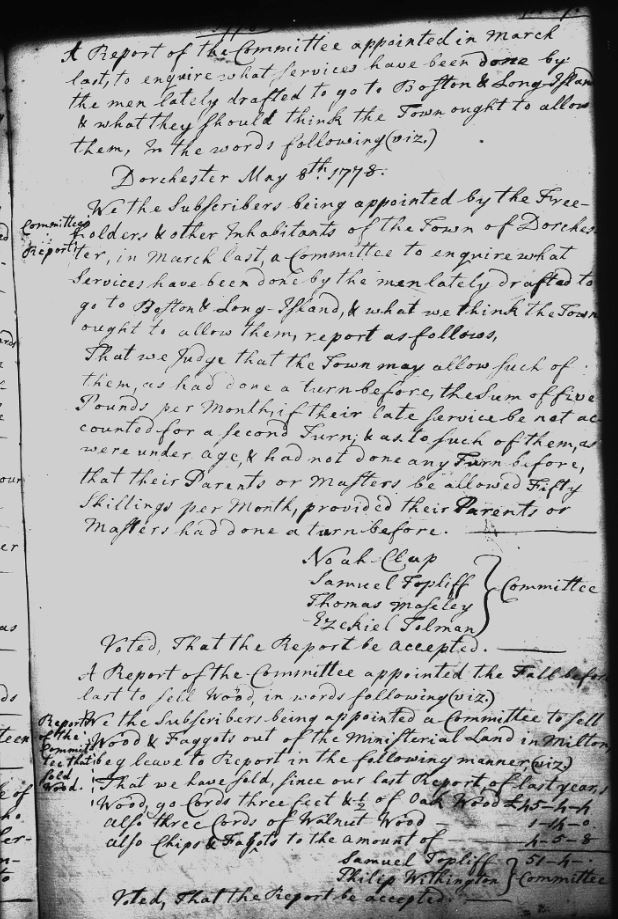 A Report of the Committee appointed in March
last, to enquire what Services have been done by
the men lately drafted to go to Boston & Long-Island
& what they should think the Town ought to allow
them, In the words following (viz.)
Dorchester May 8th. 1778.
We the Subscribers being appointed by the Free-
holders & other Inhabitants of the Town of Dorches-
ter, in March last, a Committee to enquire what
Services have been done by the men lately drafted to
go to Boston & Long-Island, & what we think the Town
ought to allow them, report as follows,
That we Judge that the Town may allow such of
them, as had done a turn before, the Sum of five
Pounds per Month, if their late Service be not ac-
counted for a second Turn; & as to such of them, as
were under age, & had not done any Turn before,
that their Parents or Masters be allowed Fifty
Shillings per Month, provided their Parents or
Masters had done a turn before.
Committees
Report
Noah Clap
Samuel Topliff
Thomas Moseley
Ezekiel Tolman
Committee
Voted, That the Report be accepted.
A Report of the Committee appointed the Fall before
last to sell Wood, in words following (viz.)
We the Subscribers being appointed a Committee to sell
Wood & Faggots out of the Ministerial Land in Milton,
beg leave to Report in the following manner, (viz)
That we have sold, since our last Report, of last years
Wood, 90 Cords three feet & ½ of Oak Wood £45-4-4
also three Cords of Walnut Wood - 1-14-0
also Chips & Fagots to the amount of 4-5-8
Report
of the
Commit-
tee that
sold
Wood.
Samuel Topliff 51-4-
Philip Withington Committee
Voted, That the Report be accepted.